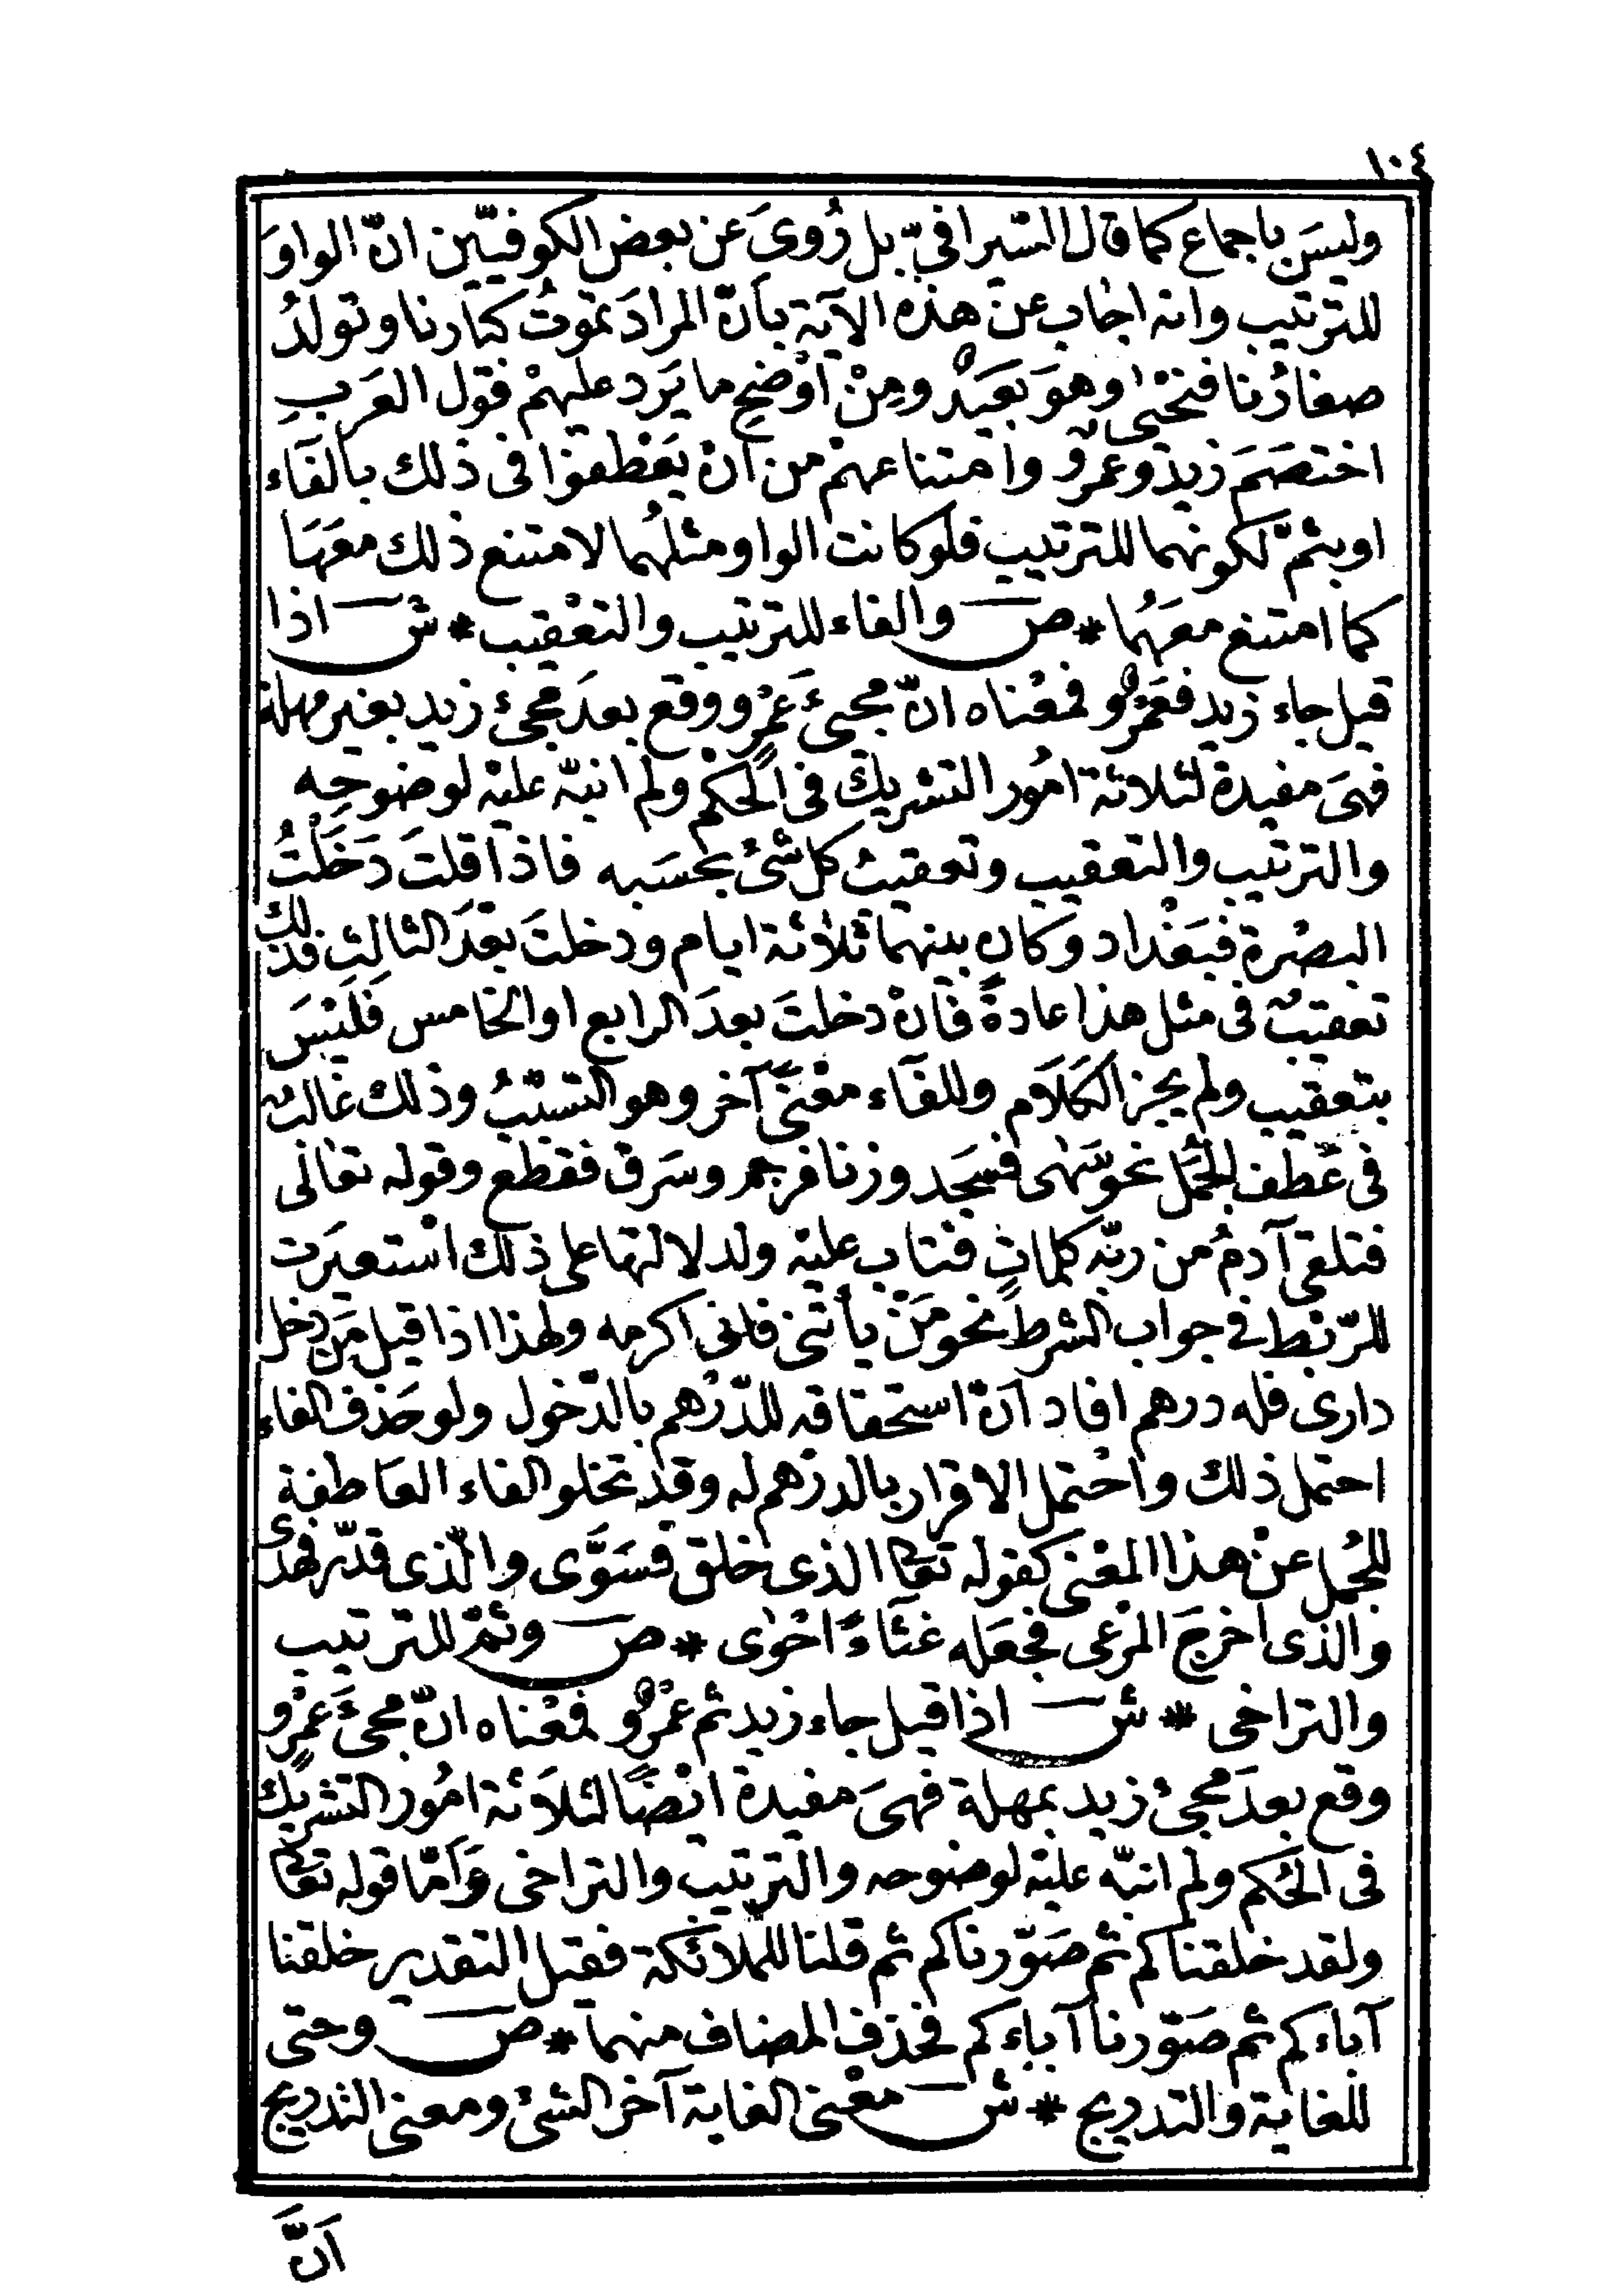 ١٠٤
وليسَ باجماع كما قال السّيرافيّ بل رُوىَ عن بعض الكوفيّين انّ الواوَ
للترتيب وانه اجاب عن هذه الآية بأنّ المرادَ تموتُ كبارنا وتولدُ
صغارُنا فنحيى وهوَ بَعيدٌ ومِنْ اوْضح ما يَرد عليهمْ قول العَرَبِ
اختصَمَ زيد وعمرٌو وامتناعهمْ من انْ يَعْطفوا فى ذلك بالفآء
او بثمّ لكونهما للترتيب فلو كانت الواو مثلُهما لامتنع ذلك معَهَا
كما امتنع معَهُما * ص والفاء للترتيب والتعْقيب * ش اذا
قيل جاء زيد فعَمْرٌو فمعْناه انّ مجىءَ عَمْرٍو وقع بعدَ مجىء زيد بغير مهلة
فهىَ مفيدة لثلاثة امُور التشريك فى الحُكْم ولم انبّه عليْه لوضوحِه
والترتيب والتعقيب وتعقيبُ كل شىْء بحسَبه فاذا قلتَ دَخَلْتُ
البصْرة فبَغْداد وكان بينهما ثلاثة ايام ودخلتَ بعدَ الثالثِ فذلك
تعقيبٌ فى مثل هذا عادةً فانْ دخلتَ بعدَ الرابع او الخامس فَليْسَ
بتعقيب ولم يجز الكَلاَم وللفآء معْنىً آخر وهو التسبّبُ وذلك غالبٌ
فى عَطف الجُمَل نحو سَهٰى فسَجَد وزنا فرجم وسَرق فقطع وقوله تعَالٰى
فتلقى آدمُ من ربّه كلماتٍ فتاب عليْه ولدلالتها على ذلك اسْتعيرَت
للرّبْط فى جواب الشرط نحو مَنْ يأتنى فانى اكرمه ولهذا اذا قيل مَن دخل
دارى فله درهم افاد انّ استحقاقه للدّرْهم بالدّخول ولو حَذف الفاء
احتمل ذلك واحْتمل الاقرار بالدرْهم له وقدْ تخلو الفاء العَاطفة
للجُمل عنْ هذا المعْنى كقوله تعا الذى خلق فسَوَّى والّذى قدّر فهَدٰى
والذى اخرجَ المرْعى فجعَله غثَاءً احْوٰى * ص وثمّ للترتيب
والتراخى * ش اذا قيل جاء زيد ثم عمْرٌو فمعْناه انّ مجىءَ عمْرٍو
وقع بعدَ مجىْء زيد بمهلة فهىَ مفيدة ايْضًا لثلاَثة امُور التشريك
فى الحُكم ولم انبّه عليْه لوضوحه والترتيب والتراخى وَامّا قوله تعا
ولقد خلقناكم ثم صَوّرناكم ثم قلنا للملائكة فقيل التقدير خلقنا
آباءكم ثم صَوّرنا آباءكم فحذف المضاف منهما * ص وحتى
للغاية والتدريج * ش معْنى الغاية آخر الشىْء ومعنى التدريج
اَنَّ